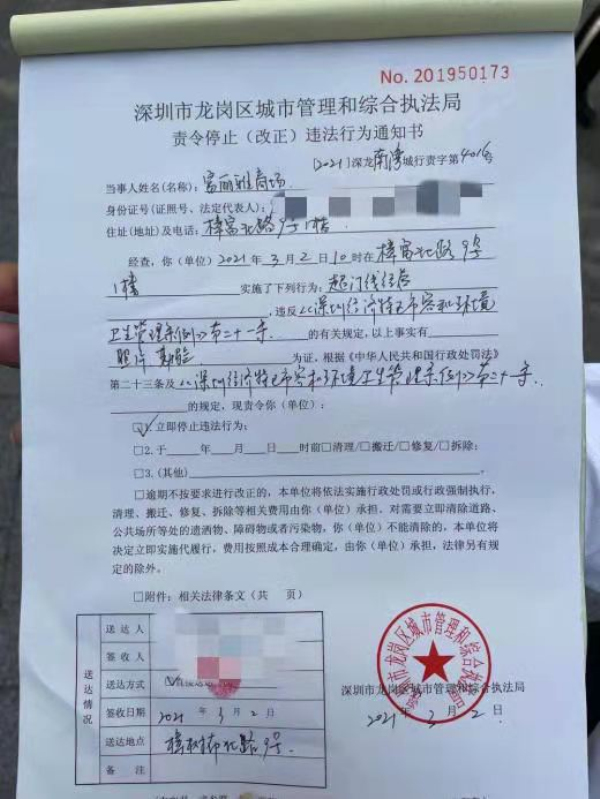 No. 201950173
深圳市龙岗区城市管理和综合执法局
责令停止（改正）违法行为通知书
[2021]深龙南湾城行责字第4016号
当事人姓名(名称)：富丽雅商场
身份证号(证照号、法定代表人)：
住址(地址)及电话：樟富北路9号1栋
经查，你（单位）2021年3月2日10时在樟富北路9号
1栋 实施了下列行为：超门线经营
，违反《深圳经济特区市容和环境
卫生管理条例》第二十一条 的有关规定，以上事实有
照片 勘验 为证，根据《中华人民共和国行政处罚法》
第二十三条及《深圳经济特区市容和环境卫生管理条例》第二十一条.
的规定，现责令你（单位）：
☑1.立即停止违法行为；
□2.于 年 月 日 时前□清理/□搬迁/□修复/□拆除；
□3.(其他) .
□逾期不按要求进行改正的，本单位将依法实施行政处罚或行政强制执行，
清理、搬迁、修复、拆除等相关费用由你（单位）承担。对需要立即清除道路、
公共场所等处的遗洒物、障碍物或者污染物，你（单位）不能清除的，本单位将
决定立即实施代履行，费用按照成本合理确定，由你（单位）承担，法律另有规
定的除外。
□附件：相关法律条文（共 页）
送达情况
送达人
签收人
送达方式
签收日期 2021年3月2日
送达地点 樟树布北路9号.
备注
深圳市龙岗区城市管理和综合执法局
深圳市龙岗区城市管理和综合执法局
2021年3月2日